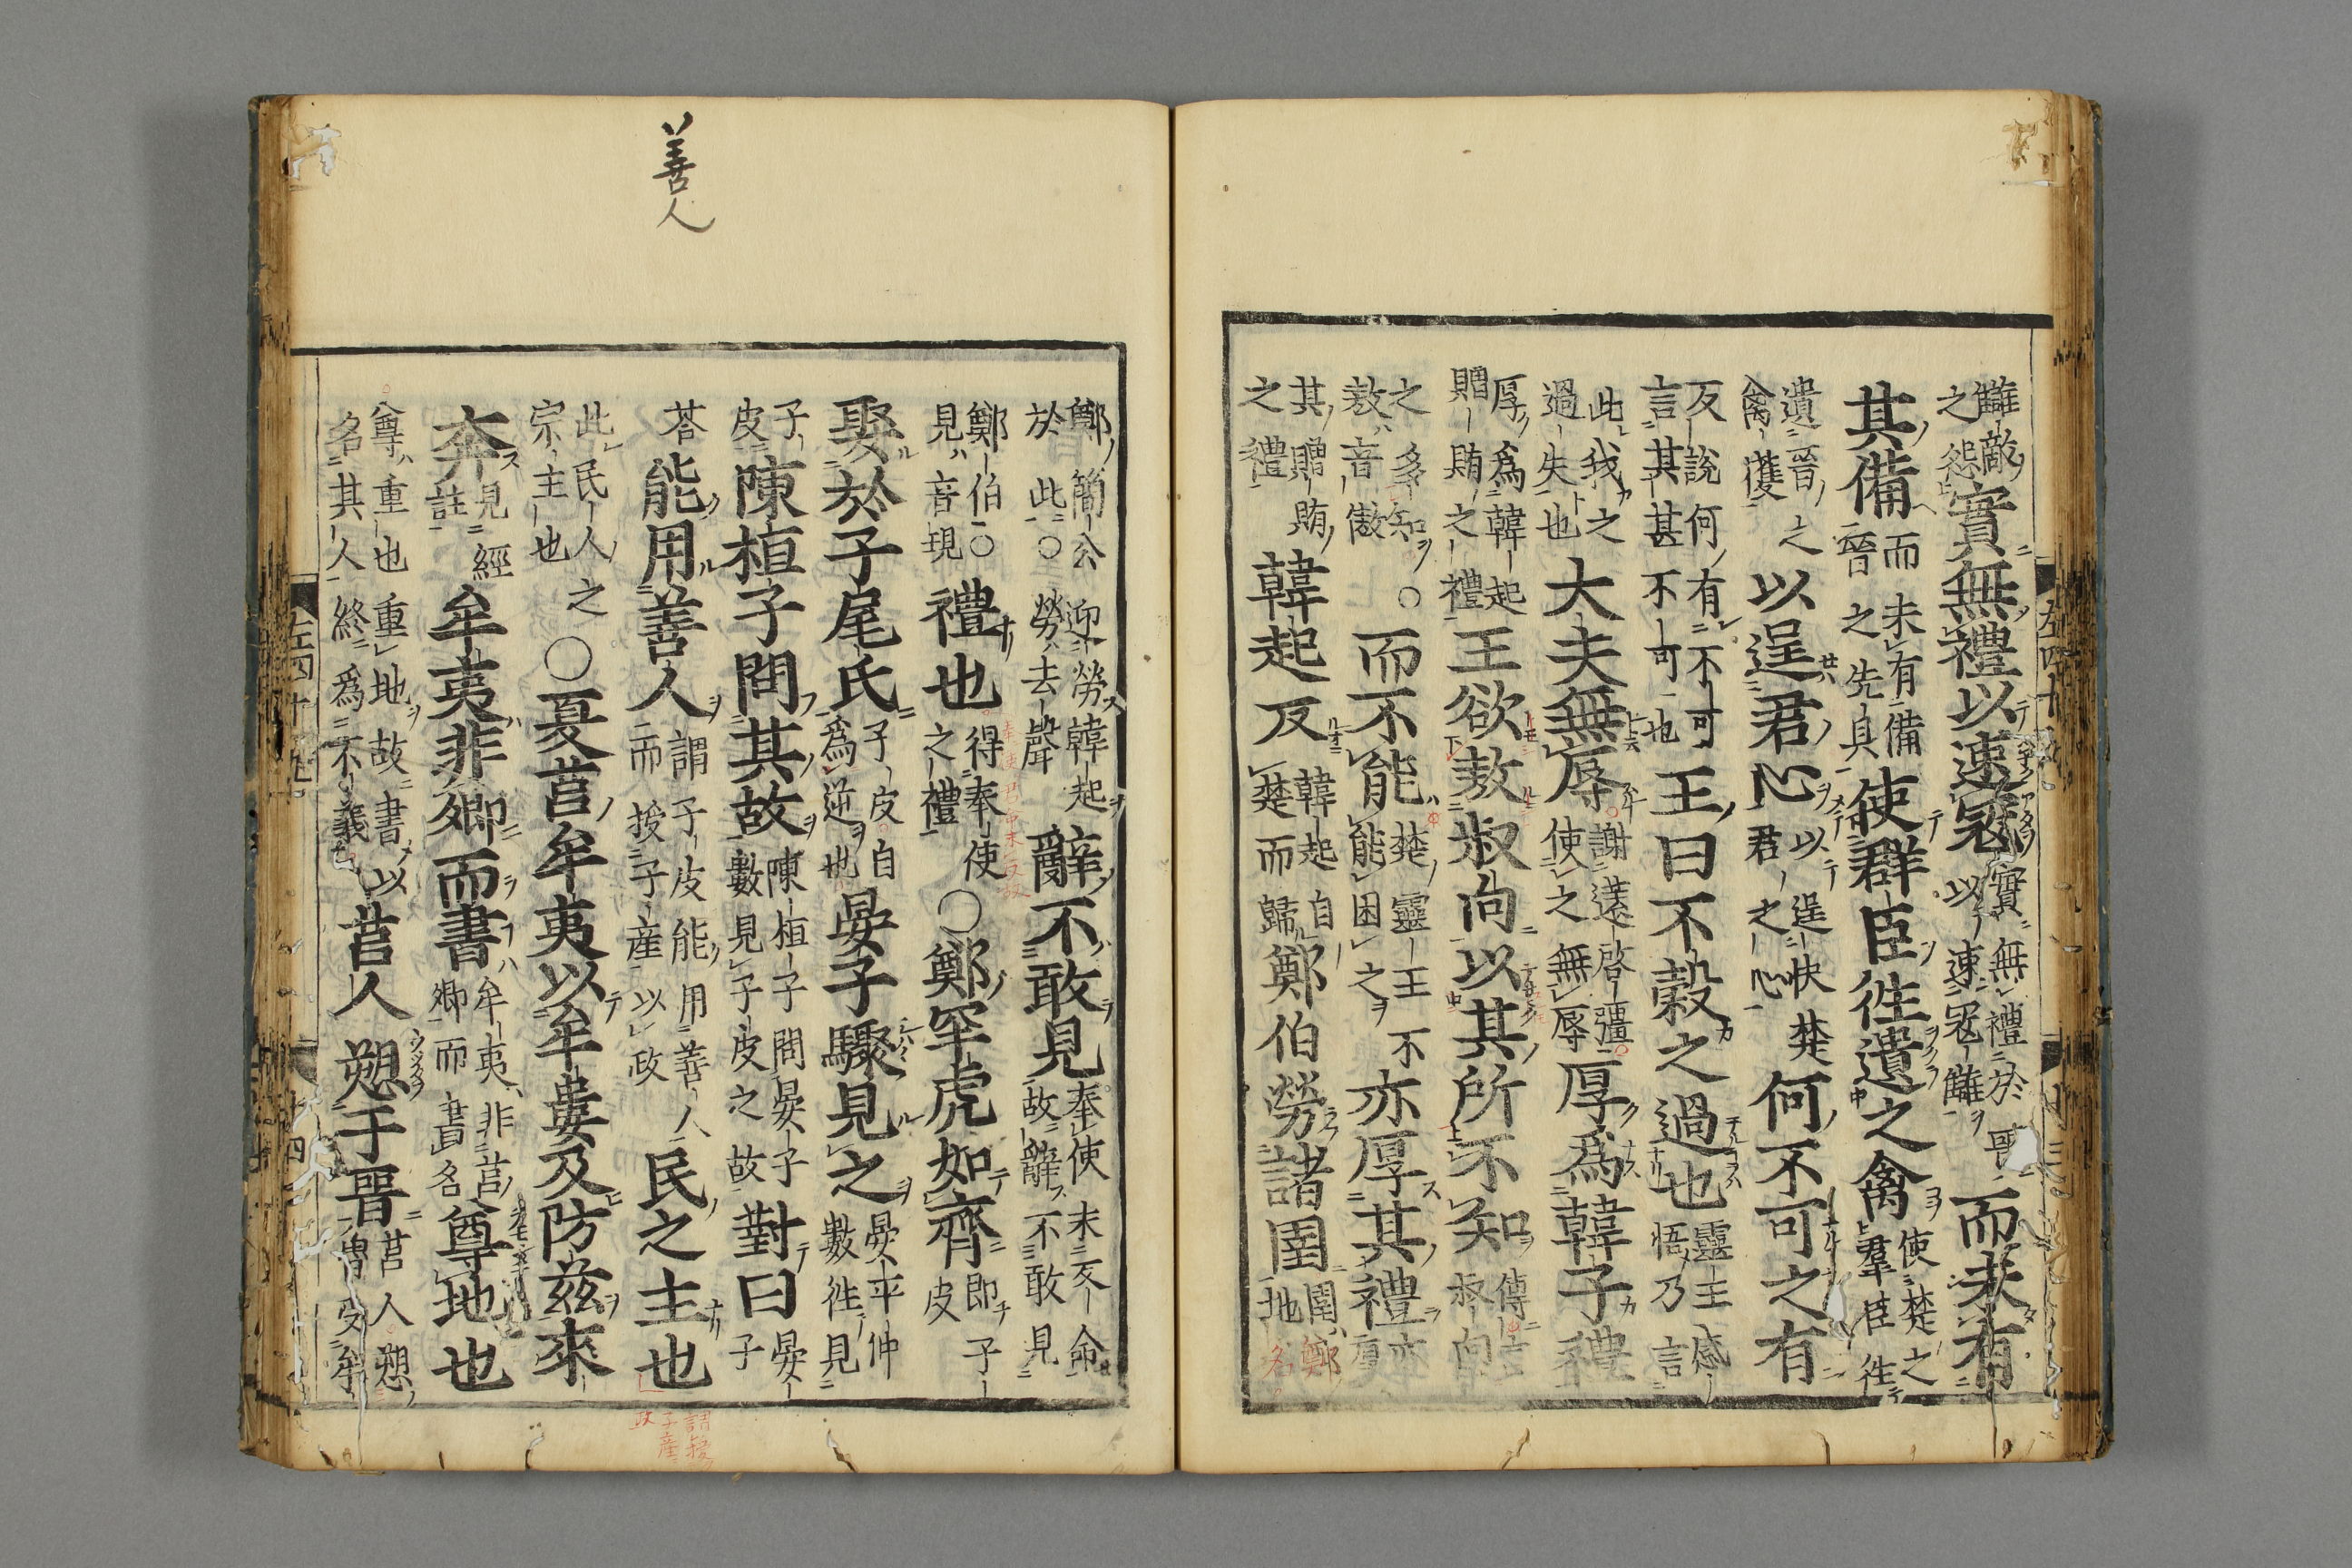 讎敵之怨實無禮以速寇實無禮於以速寇讎而未有
其備而未有備晉之先具使群臣徃遺之禽使楚之羣臣徃
遺晉之禽獲以逞君心以逞快楚君之心何不可之有
反說何有不可言其甚不可也王曰不穀之過也靈王感悟乃言
此我之過失也大夫無辱謝遠啓彊使之無辱厚爲韓子禮
厚爲韓起贈賄之禮王欲敖叔向以其所不知叔向
之多知○敖音傲而不能楚靈王不能困之亦厚其禮亦厚
其贈賄之禮韓起反韓起自楚而歸鄭伯勞諸圉圉鄭地名
鄭簡公迎勞韓起於此○勞去聲辭不敢見奉使未反命故辭不敢見
鄭伯○見音現禮也得奉使之禮○鄭罕虎如齊即子皮
娶於子尾氏子皮自爲逆也晏子驟見之晏平仲數徃見
子皮陳桓子問其故陳桓子問晏子數見子皮之故對曰晏子
荅能用善人謂子皮能用善人而授子產以政民之主也
此民人之宗主也○夏莒牟夷以牟婁及防兹來
奔見經註牟夷非卿而書牟夷非莒卿而書名尊地也
尊重也重地故書以名其人終爲不義莒人愬于晉莒人愬魯受牟
善人
左四十九
廿四